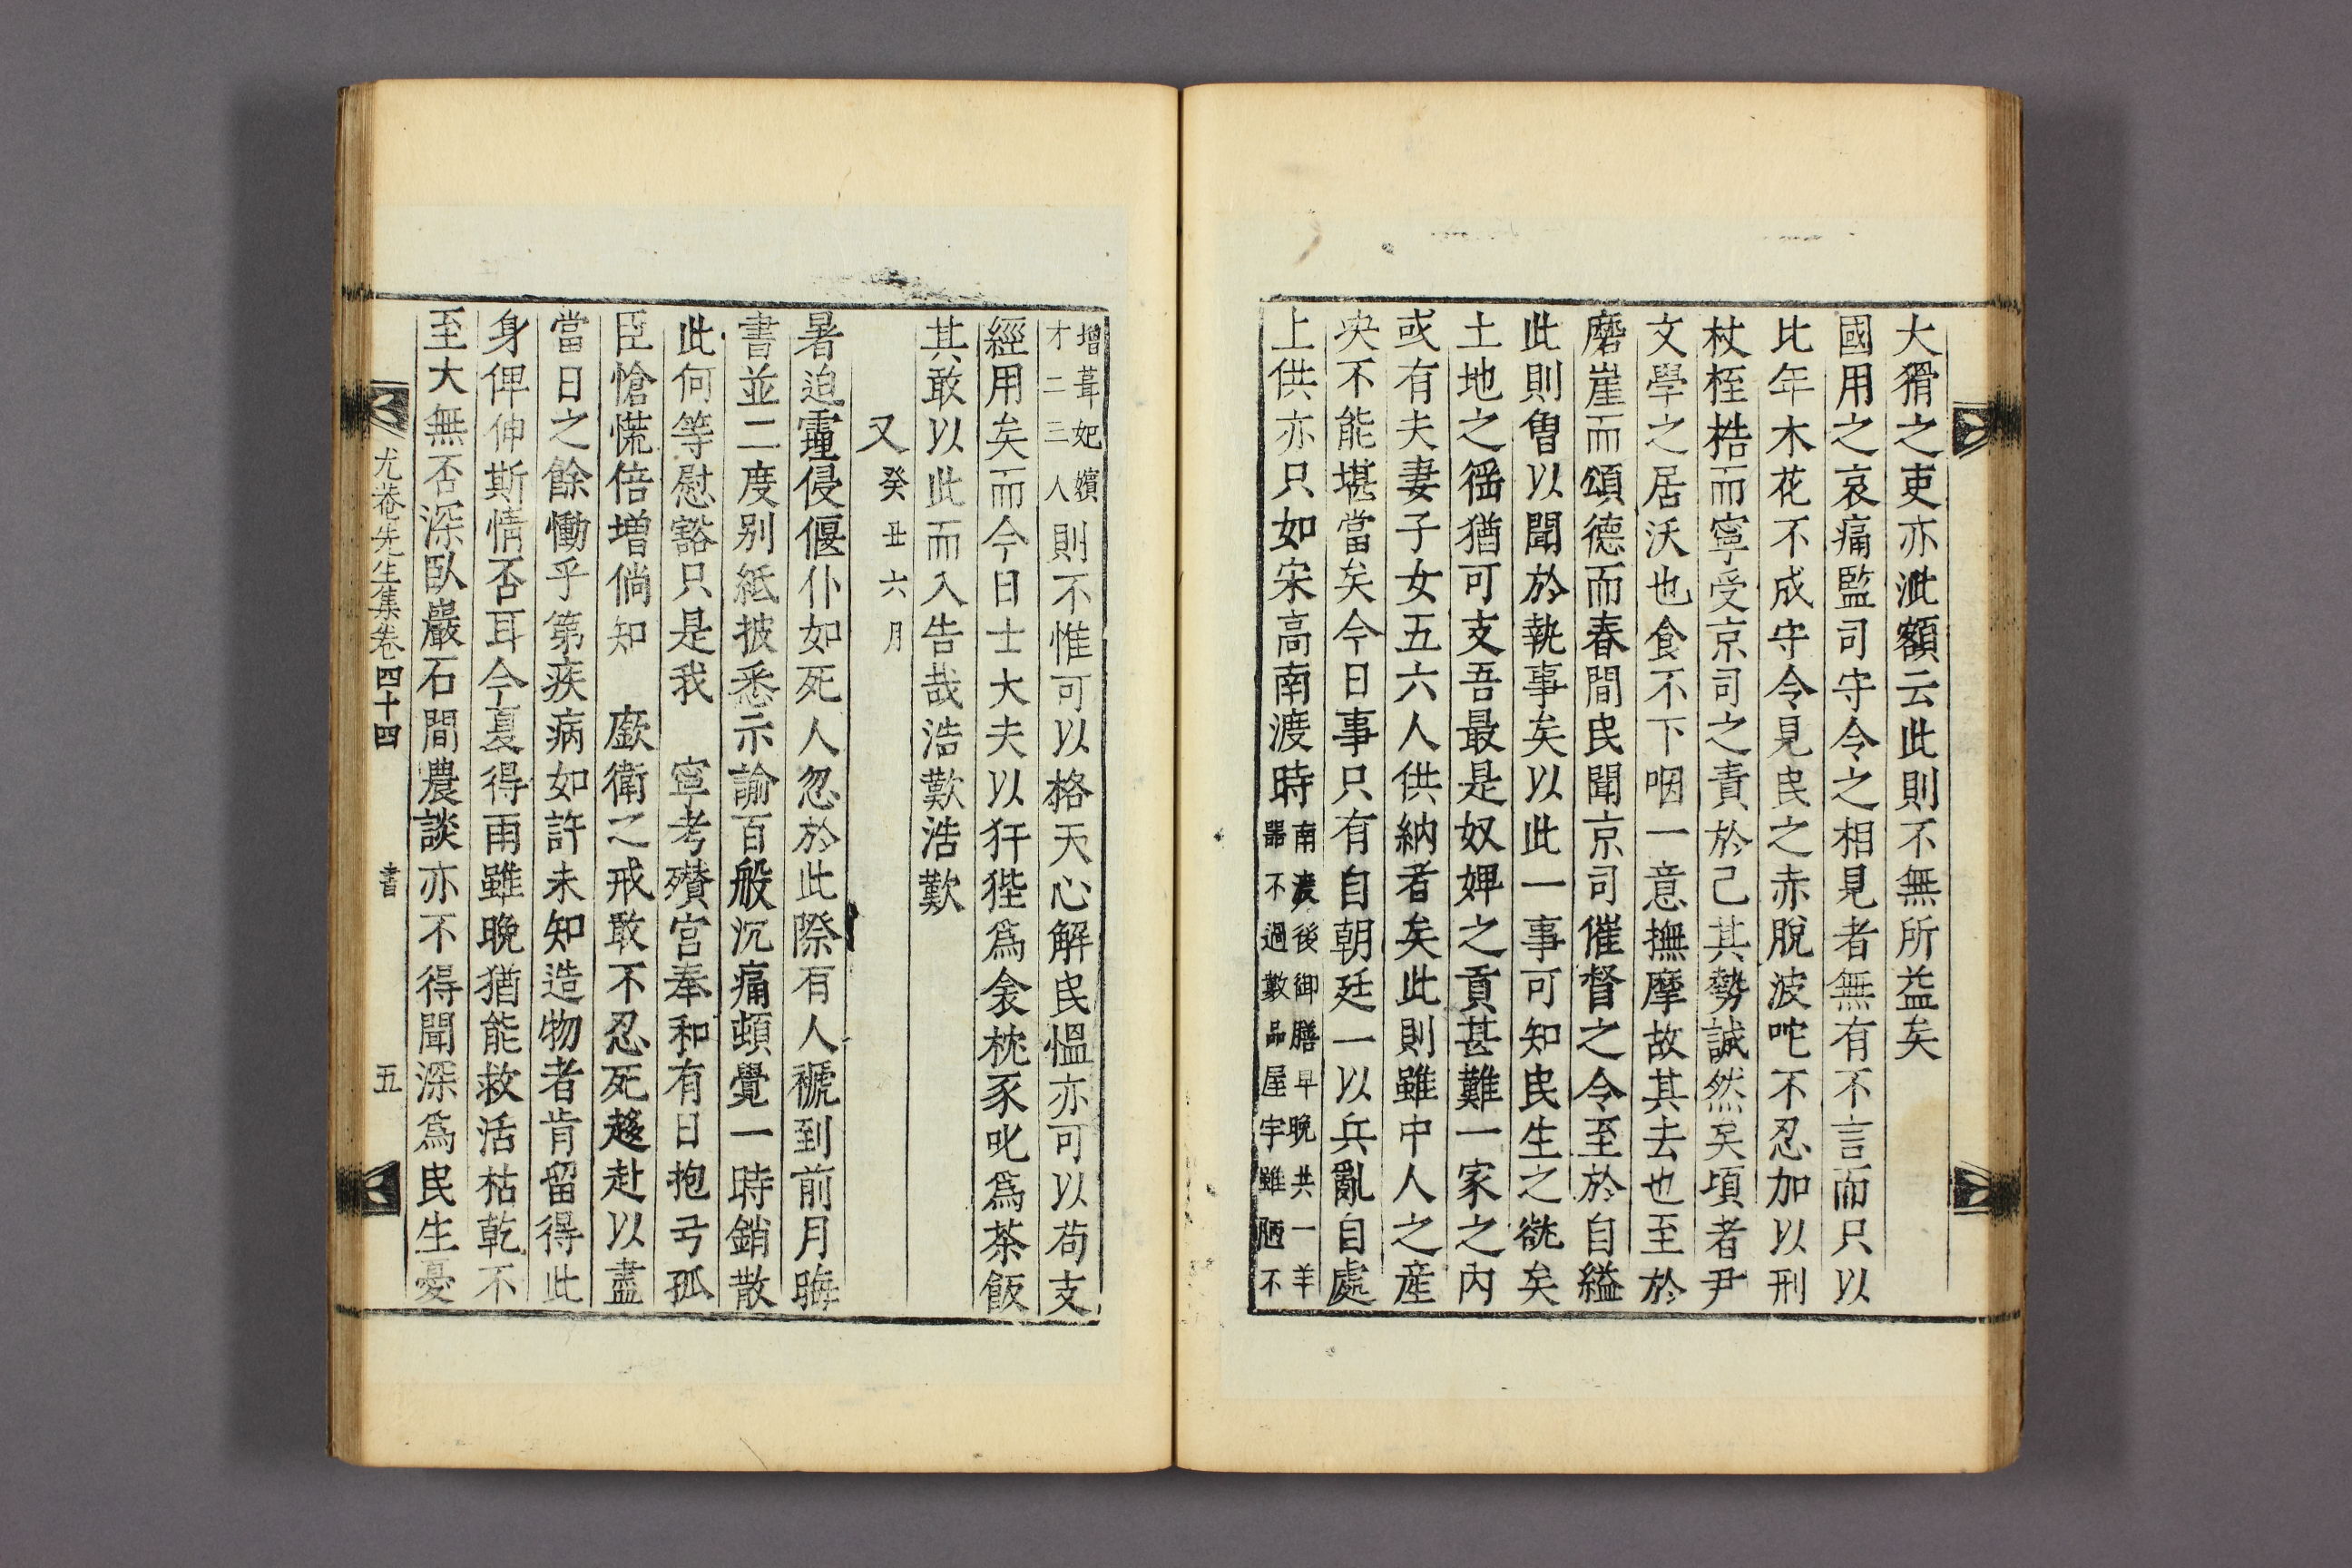 大猾之吏亦泚額云此則不無所益矣
國用之哀痛監司守令之相見者無有不言而只以
比年木花不成守令見民之赤脫波咜不忍加以刑
杖桎梏而寧受京司之責於己其勢誠然矣頃者尹
文學之居沃也食不下咽一意撫摩故其去也至於
磨崖而頌德而春間民聞京司催督之令至於自縊
此則曾以聞於執事矣以此一事可知民生之㦲矣
土地之徭猶可支吾最是奴婢之貢甚難一家之內
或有夫妻子女五六人供納者矣此則雖中人之產
央不能堪當矣今日事只有自朝廷一以兵亂自處
上供亦只如宋高南渡時南渡後御膳早晚共一羊
器不過數品屋宇雖陋不
增葺妃嬪
才二三人則不惟可以格天心解民慍亦可以苟支
經用矣而今日士大夫以犴狴爲衾枕豕叱爲茶飯
其敢以此而入告哉浩歎浩歎
又癸丑六月
暑迫霾侵偃仆如死人忽於此際有人褫到前月晦
書並二度別紙披悉示諭百般沉痛頓覺一時銷散
此何等慰豁只是我　寧考殯宮奉和有日抱弓孤
臣愴慌倍增倘知　廞衛之戒敢不忍死趍赴以盡
當日之餘慟乎第疾病如許未知造物者肯留得此
身俾伸斯情否耳今夏得雨雖晚猶能救活枯乾不
至大無否深臥巖石間農談亦不得聞深爲民生憂
尤菴先生集卷四十四　書　五